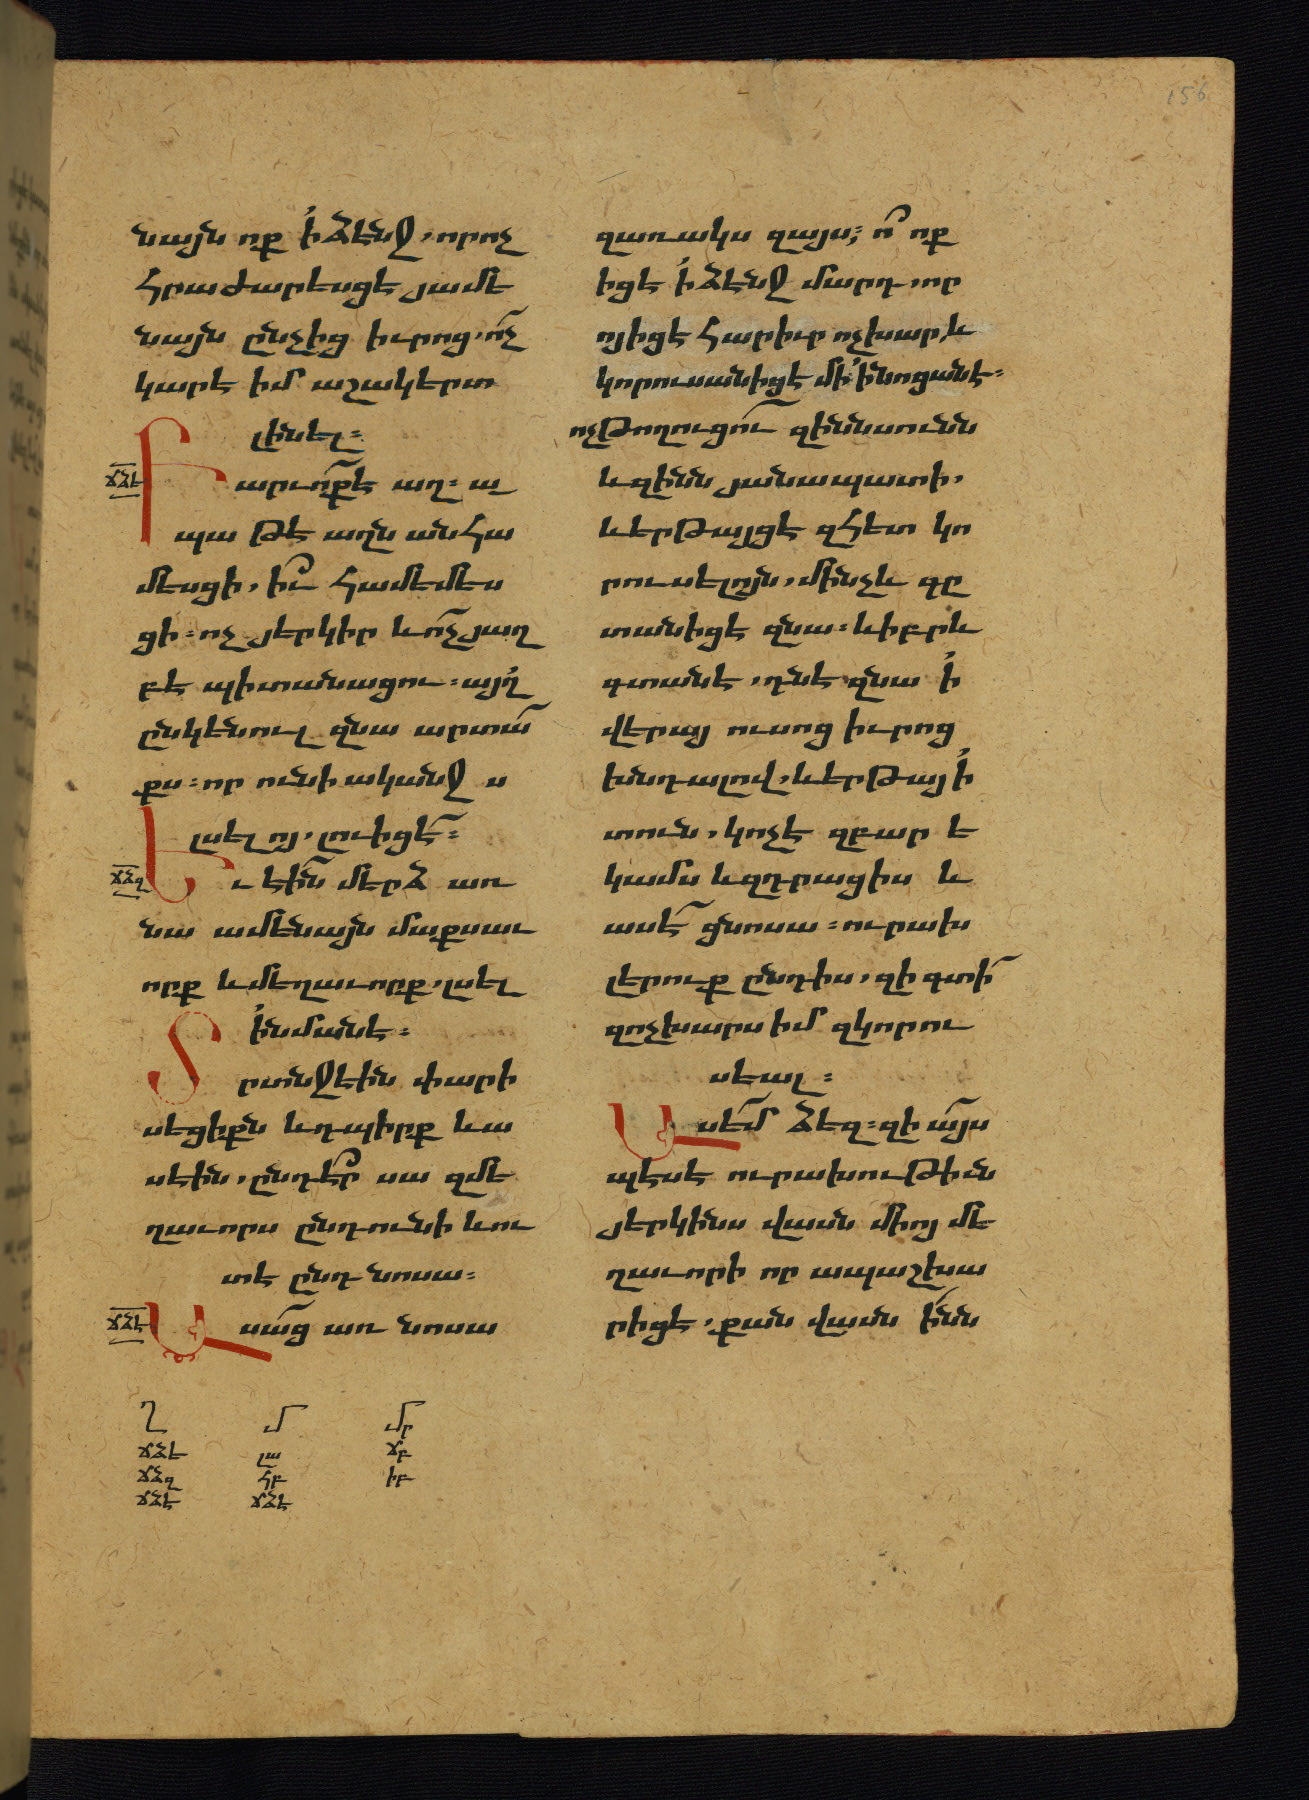 156
նայն ոք ի ձէնջ, որոչ
հրաժարեսցէ յամե
նայն ընչից իւրոց, ոչ
կարէ իմ աշակերտ
լինել:
ճձե
Բարւոքէ աղ: ա
պա թէ աղն անհա
մեսցի, իւ համեմես
ցի: ոչ յերկիր և ոչ յաղ
բէ պիտանացու: այղ
ընկենուլ զնա արտա
քս: որ ունի ականջ լ
սելոյ, լուիցէ:
ճձզ
Եւ էին մերձ առ
նա ամենայն մաքսաւ
որք և մեղաւորք, լսել
ի նմանէ:
Տրտնջէին փարի
սեցիքն և դպիրք և ա
սեին, ընդէր սա զմե
ղաւորս ընդունի և ու
տէ ընդ նոսա:
ճձէ
Ասաց առ նոսա
զառակս զայս; ո ոք
իցէ ի ձէնջ մարդ, որ
ոյիցէ հարիւր ոչխար, և
կորուսանիցէ մի ի նոցանէ:
ոչ թողուցու զիննսունն
և զինն յանապատի,
և երթայցէ զհետ կո
րուսելոյն, մինչև գը
տանիցէ զնա: և իբրև
գտանէ, դնէ զնա ի
վերայ ուսոց իւրոց
խնդալով, և երթայ ի
տուն, կոչէ զբար ե
կամս և զդրացիս և
ասէ ցնոսա: ուրախ
լերուք ընդիս, զի գտի
զոչխարս իմ զկորու
սեալ:
Ասեմ ձեզ: զի այս
պէսէ ուրախութիւն
յերկինս վասն միոյ մե
ղաւորի որ ապաշխա
րիցէ, քան վասն ինն
Ղ Մ Մր
ճձե լա ժբ
ճձզ հբ իբ
ճձէ ճձէ